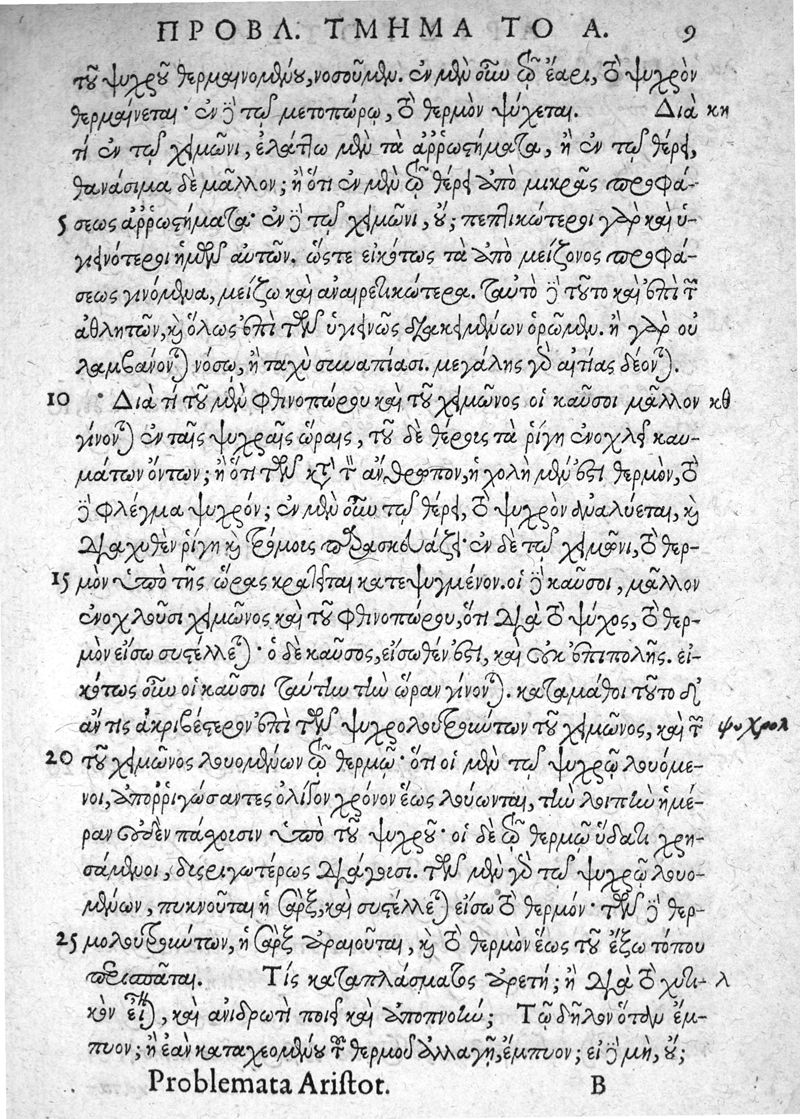 ΠΡΟΒΛ. ΤΜΗΜΑ ΤΟ Α. 9
τοῦ ψυχροῦ θερμαινομένου, νοσοῦμεν. ἐν μὲν οὖν τῷ ἔαρι, τὸ ψυχρὸν
θερμαίνεται· ἐν δὲ τῷ μετοπώρῳ, τὸ θερμὸν ψύχεται. Διὰ κη
τί ἐν τῷ χειμῶνι, ἐλάττω μὲν τὰ ἀῤῥωστήματα, ἢ ἐν τῷ θέρει,
θανάσιμα δὲ μᾶλλον; ἢ ὅτι ἐν μὲν τῷ θέρει ἀπὸ μικρᾶς προφά-
5 σεως ἀῤῥωστήματα· ἐν δὲ τῷ χειμῶνι, οὔ; πεπτικώτεροι γὰρ καὶ ὑ-
γιεινότεροι ἡμῶν αὐτῶν. ὥστε εἰκότως τὰ ἀπὸ μείζονος προφά-
σεως γινόμενα, μείζω καὶ ἀναιρετικώτερα. ταυτὸ δὲ τοῦτο καὶ ἐπὶ τῶν
ἀθλητῶν, καὶ ὅλως ἐπὶ τῶν ὑγιεινῶς διακειμένων ὁρῶμεν. ἢ γὰρ οὐ
λαμβάνονται νόσῳ, ἢ ταχὺ συναπίασι. μεγάλης γὰρ αἰτίας δέονται.
10 · Διὰ τί τοῦ μὲν φθινοπώρου καὶ τοῦ χειμῶνος οἱ καῦσοι μᾶλλον κθ
γίνονται ἐν ταῖς ψυχραῖς ὥραις, τοῦ δὲ θέρους τὰ ῥίγη ἐνοχλεῖ καυ-
μάτων ὄντων; ἢ ὅτι τῶν κατὰ τὸν ἄνθρωπον, ἡ χολὴ μέν ἐστι θερμὸν, τὸ
δὲ φλέγμα ψυχρόν; ἐν μὲν οὖν τῷ θέρει, τὸ ψυχρὸν ἀναλύεται, καὶ
διαχυθὲν ῥίγη καὶ τρόμοις παρασκευάζει· ἐν δὲ τῷ χειμῶνι, τὸ θερ-
15 μὸν ὑπὸ τῆς ὥρας κρατεῖται κατεψυγμένον. οἱ δὲ καῦσοι, μᾶλλον
ἐνοχλοῦσι χειμῶνος καὶ τοῦ φθινοπώρου, ὅτι διὰ τὸ ψύχος, τὸ θερ-
μὸν εἴσω συστέλλεται· ὁ δὲ καῦσος, εἴσωθέν ἐστι, καὶ οὐκ ἐπιπολῆς. εἰ-
κότως οὖν οἱ καῦσοι ταύτην τὴν ὥραν γίνονται. καταμάθοι τοῦτο δ'
ἄν τις ἀκριβέστερον ἐπὶ τῶν ψυχρολουτρούντων τοῦ χειμῶνος, καὶ τῶν ψυχρολ
20 τοῦ χειμῶνος λουομένων τῷ θερμῷ· ὅτι οἱ μὲν τῷ ψυχρῷ λουόμε-
νοι, ἀποῤῥιγώσαντες ὀλίγον χρόνον ἕως λούωνται, τὴν λοιπὴν ἡμέ-
ραν οὐδὲν πάσχουσιν ὑπὸ τοῦ ψυχροῦ· οἱ δὲ τῷ θερμῷ ὕδατι χρη-
σάμενοι, δυσριγωτέρως διάγουσι. τῶν μὲν γὰρ τῷ ψυχρῷ λουο-
μένων, πυκνοῦται ἡ σὰρξ, καὶ συστέλλεται εἴσω τὸ θερμόν· τῶν δὲ θερ-
25 μολουτρούντων, ἡ σὰρξ ἀραιοῦται, καὶ τὸ θερμὸν ἕως τοῦ ἔξω τόπου
περισπᾶται. Τίς καταπλάσματος ἀρετή; ἢ διὰ τὸ χυτι- λ
κὸν εἶναι, καὶ ἀνιδρωτὶ ποιεῖν καὶ ἀποπνοίην; Τῷ δῆλον ὅταν ἔμ-
πυον; ἢ ἐὰν καταχεομένου τοῦ θερμοῦ ἀλλαγῇ, ἔμπυον; εἰ δὲ μὴ, οὔ;
Problemata Aristot. B